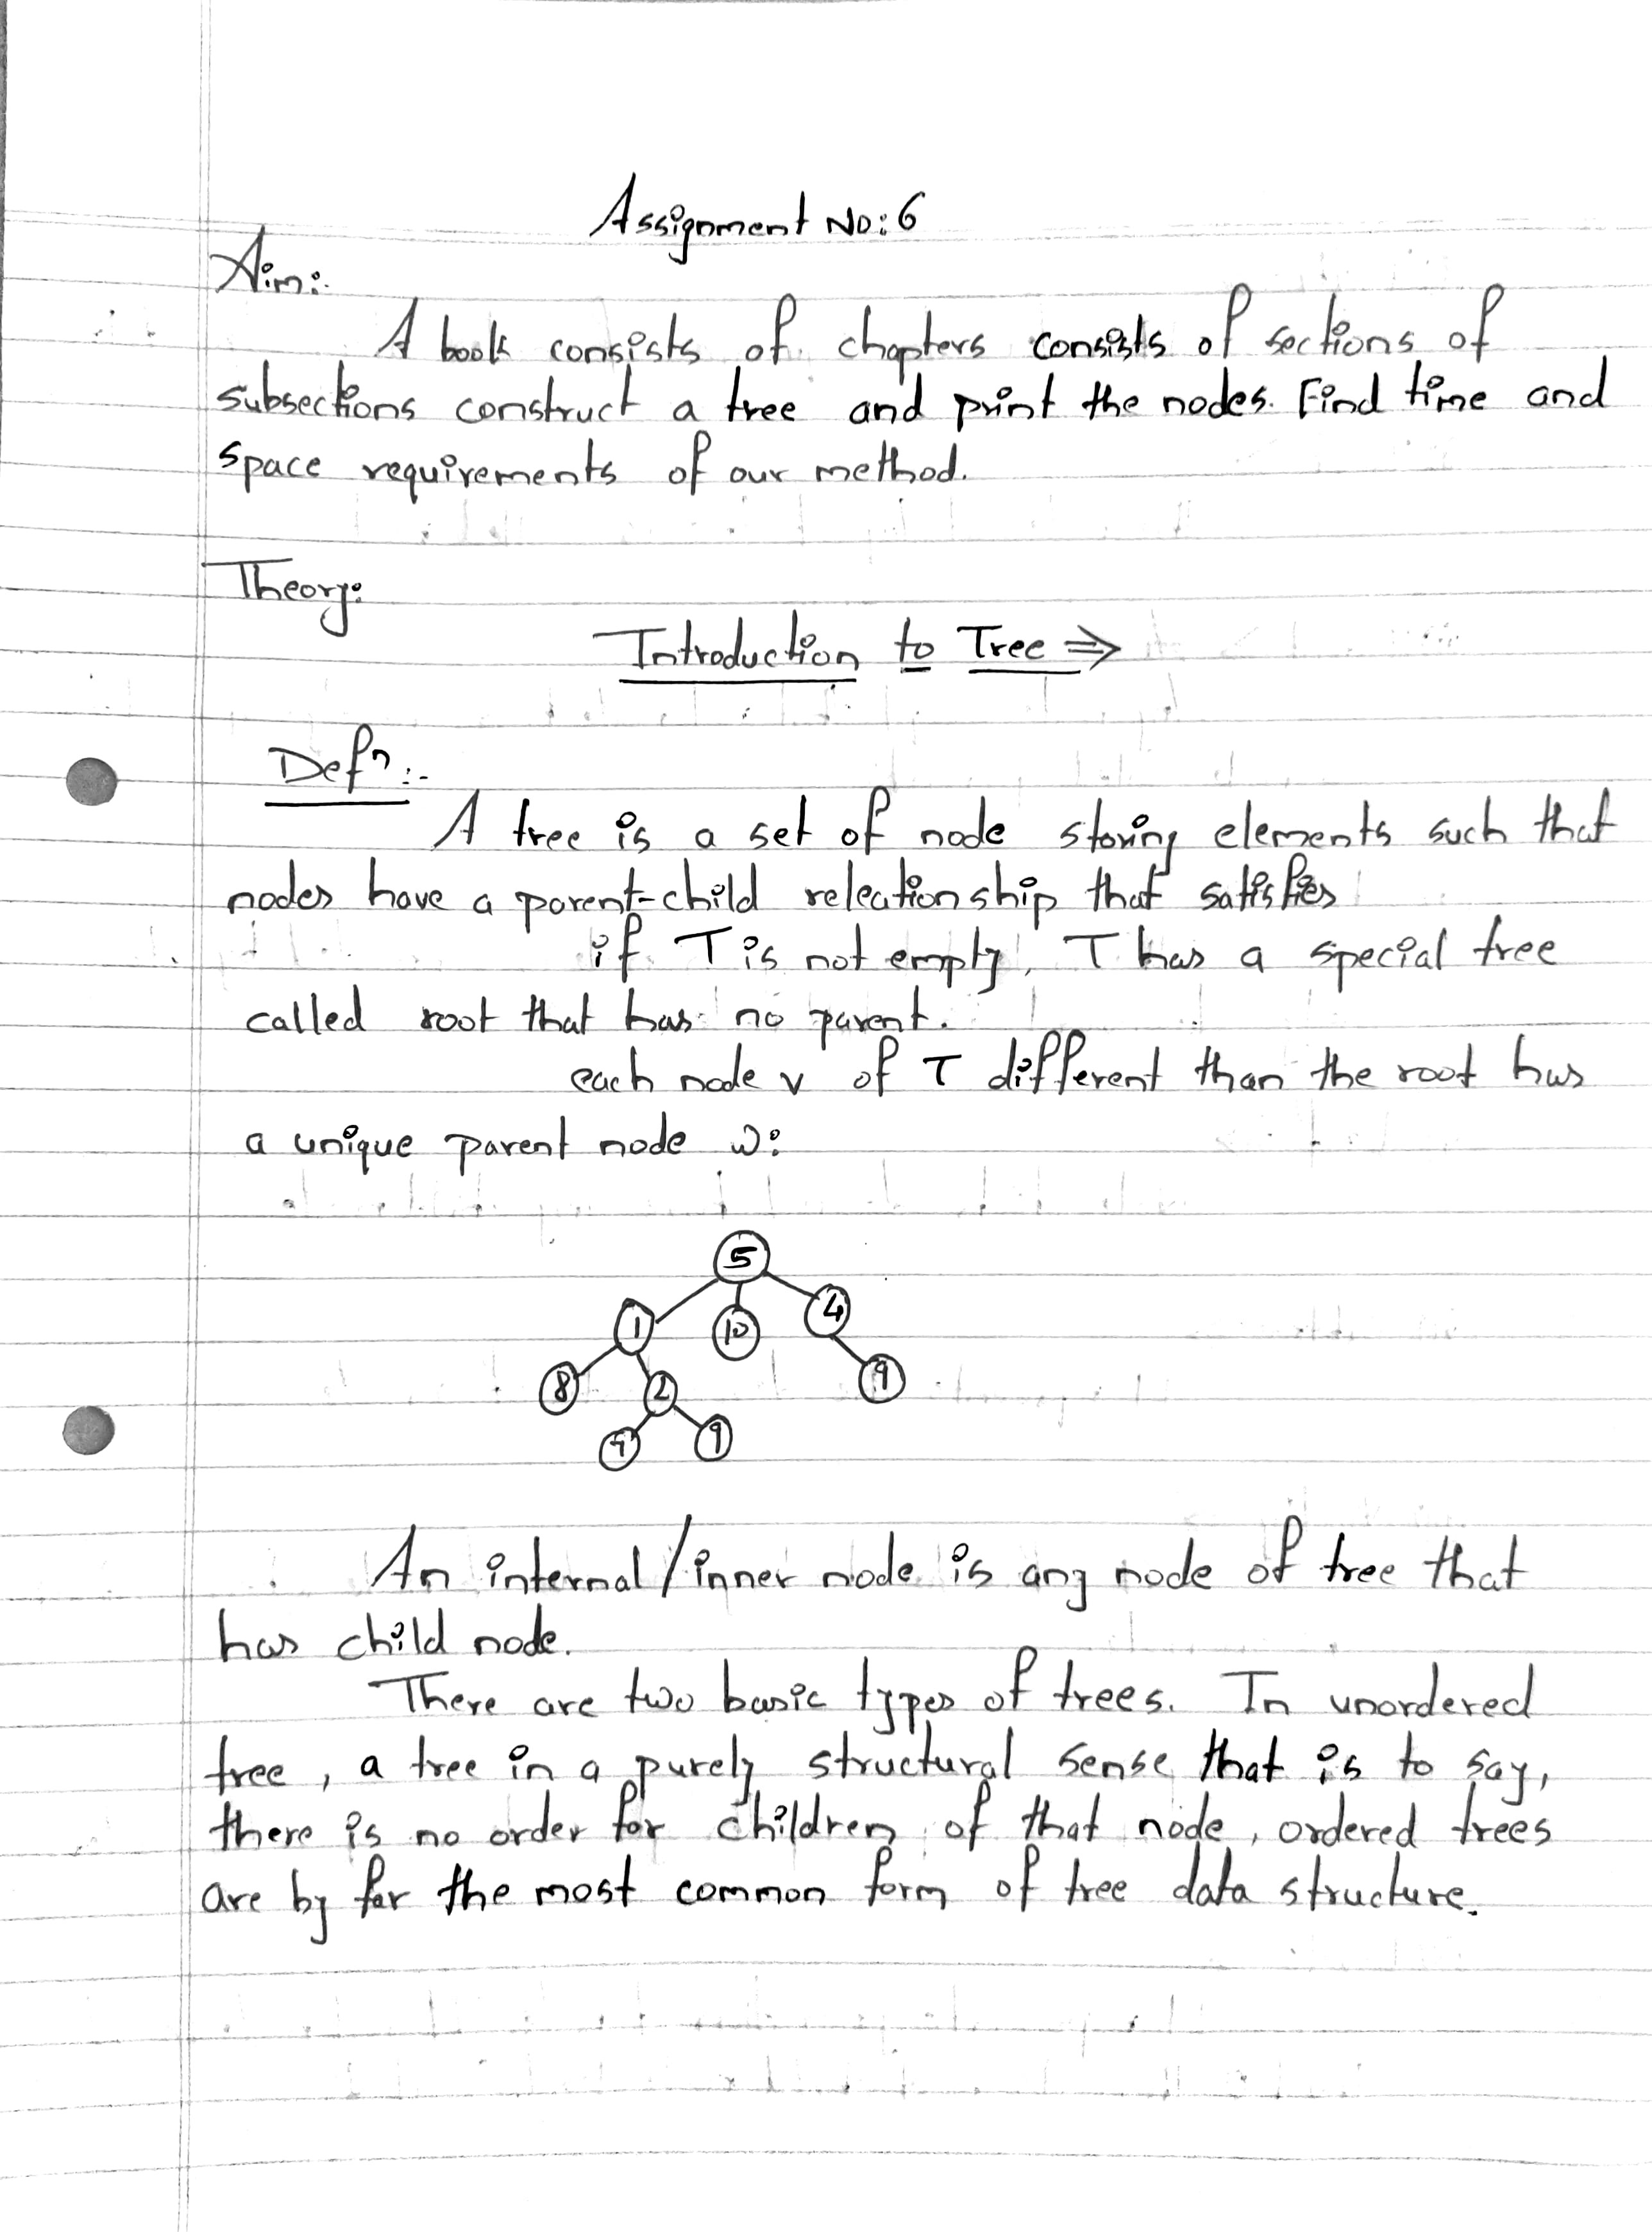 Assignment No: 6
Aim:-
A book consists of chapters consists of sections of
subsections construct a tree and print the nodes. Find time and
space requirements of our method.
Theory:
Introduction to Tree ⇒
Defⁿ :-
A tree is a set of node storing elements such that
nodes have a parent-child releationship that satisfies
if T is not empty, T has a special tree
called root that has no parent.
each node v of T different than the root has
a unique parent node w:
5
1 10 4
8 2 9
9
An internal / inner node is any node of tree that
has child node.
There are two basic types of trees. In unordered
tree, a tree in a purely structural sense that is to say,
there is no order for children of that node, ordered trees
are by far the most common form of tree data structure.